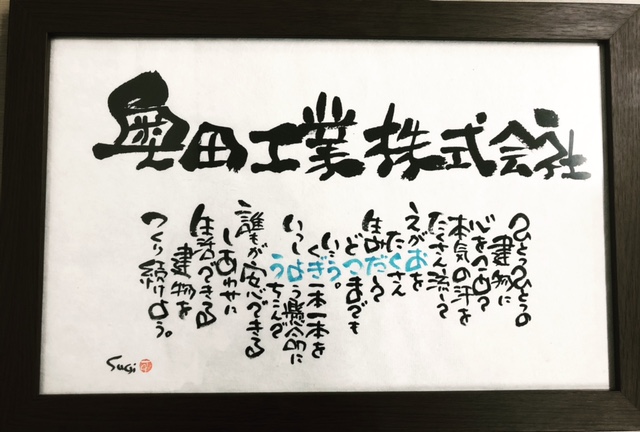 奥田工業株式会社
ひとつひとつの
建物に
心をこめて
本気の汗を
たくさん流して
えがおを
たくさん
生みだして
どこまでも
いこう。
くぎ一本一本を
いっしょう懸命に
うちこんで
誰もが安心できる
しあわせに
生活できる
建物を
つくり続けよう。
Sugi